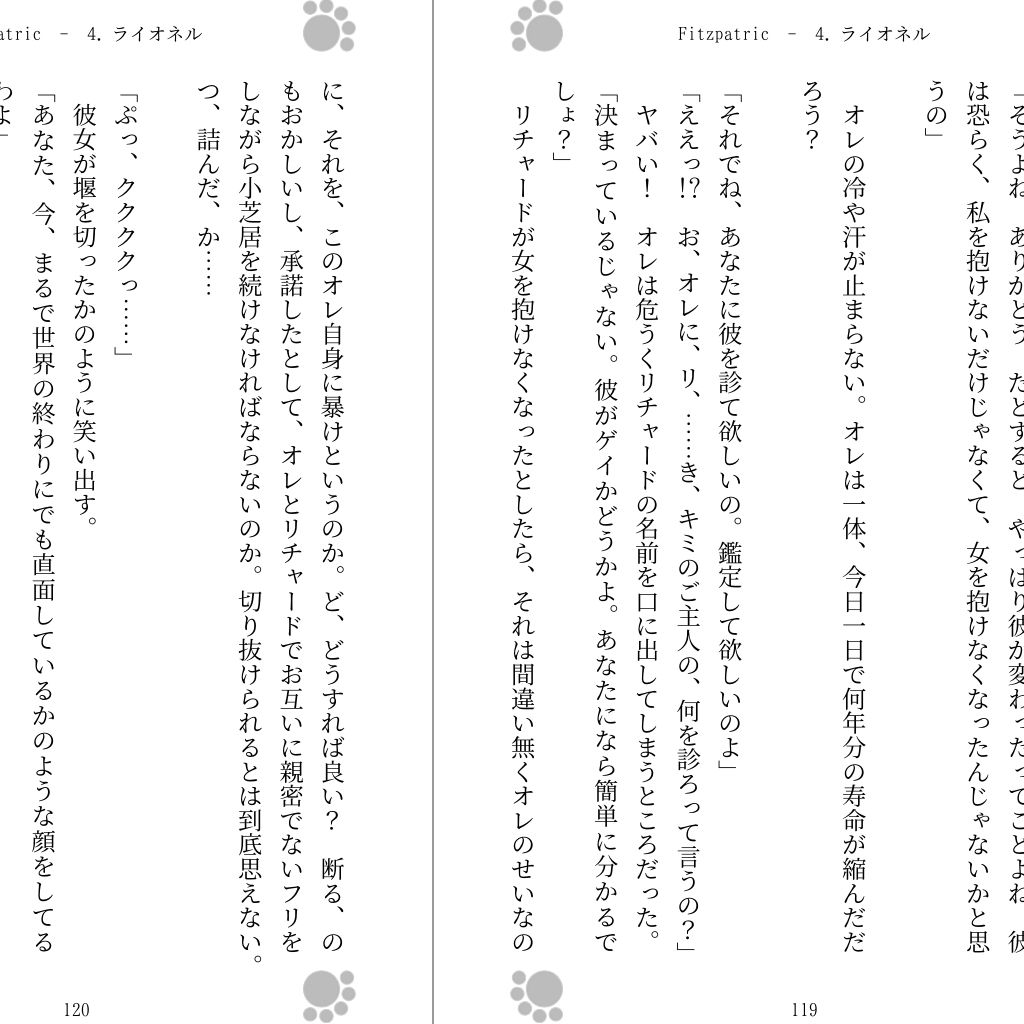 Fitzpatric － 4. ライオネル
「そうよね ありがとう だとすると やっぱり彼が変わったってことよね 彼
は恐らく、私を抱けないだけじゃなくて、女を抱けなくなったんじゃないかと思
うの」
オレの冷や汗が止まらない。オレは一体、今日一日で何年分の寿命が縮んだだ
ろう？
「それでね、あなたに彼を診て欲しいの。鑑定して欲しいのよ」
「ええっ!?　お、オレに、リ、……き、キミのご主人の、何を診ろって言うの？」
ヤバい！　オレは危うくリチャードの名前を口に出してしまうところだった。
「決まっているじゃない。彼がゲイかどうかよ。あなたになら簡単に分かるで
しょ？」
リチャードが女を抱けなくなったとしたら、それは間違い無くオレのせいなの
119
atric － 4. ライオネル
に、それを、このオレ自身に暴けというのか。ど、どうすれば良い？　断る、の
もおかしいし、承諾したとして、オレとリチャードでお互いに親密でないフリを
しながら小芝居を続けなければならないのか。切り抜けられるとは到底思えない。
つ、詰んだ、か……
「ぷっ、ククククっ……」
彼女が堰を切ったかのように笑い出す。
「あなた、今、まるで世界の終わりにでも直面しているかのような顔をしてる
わよ」
120